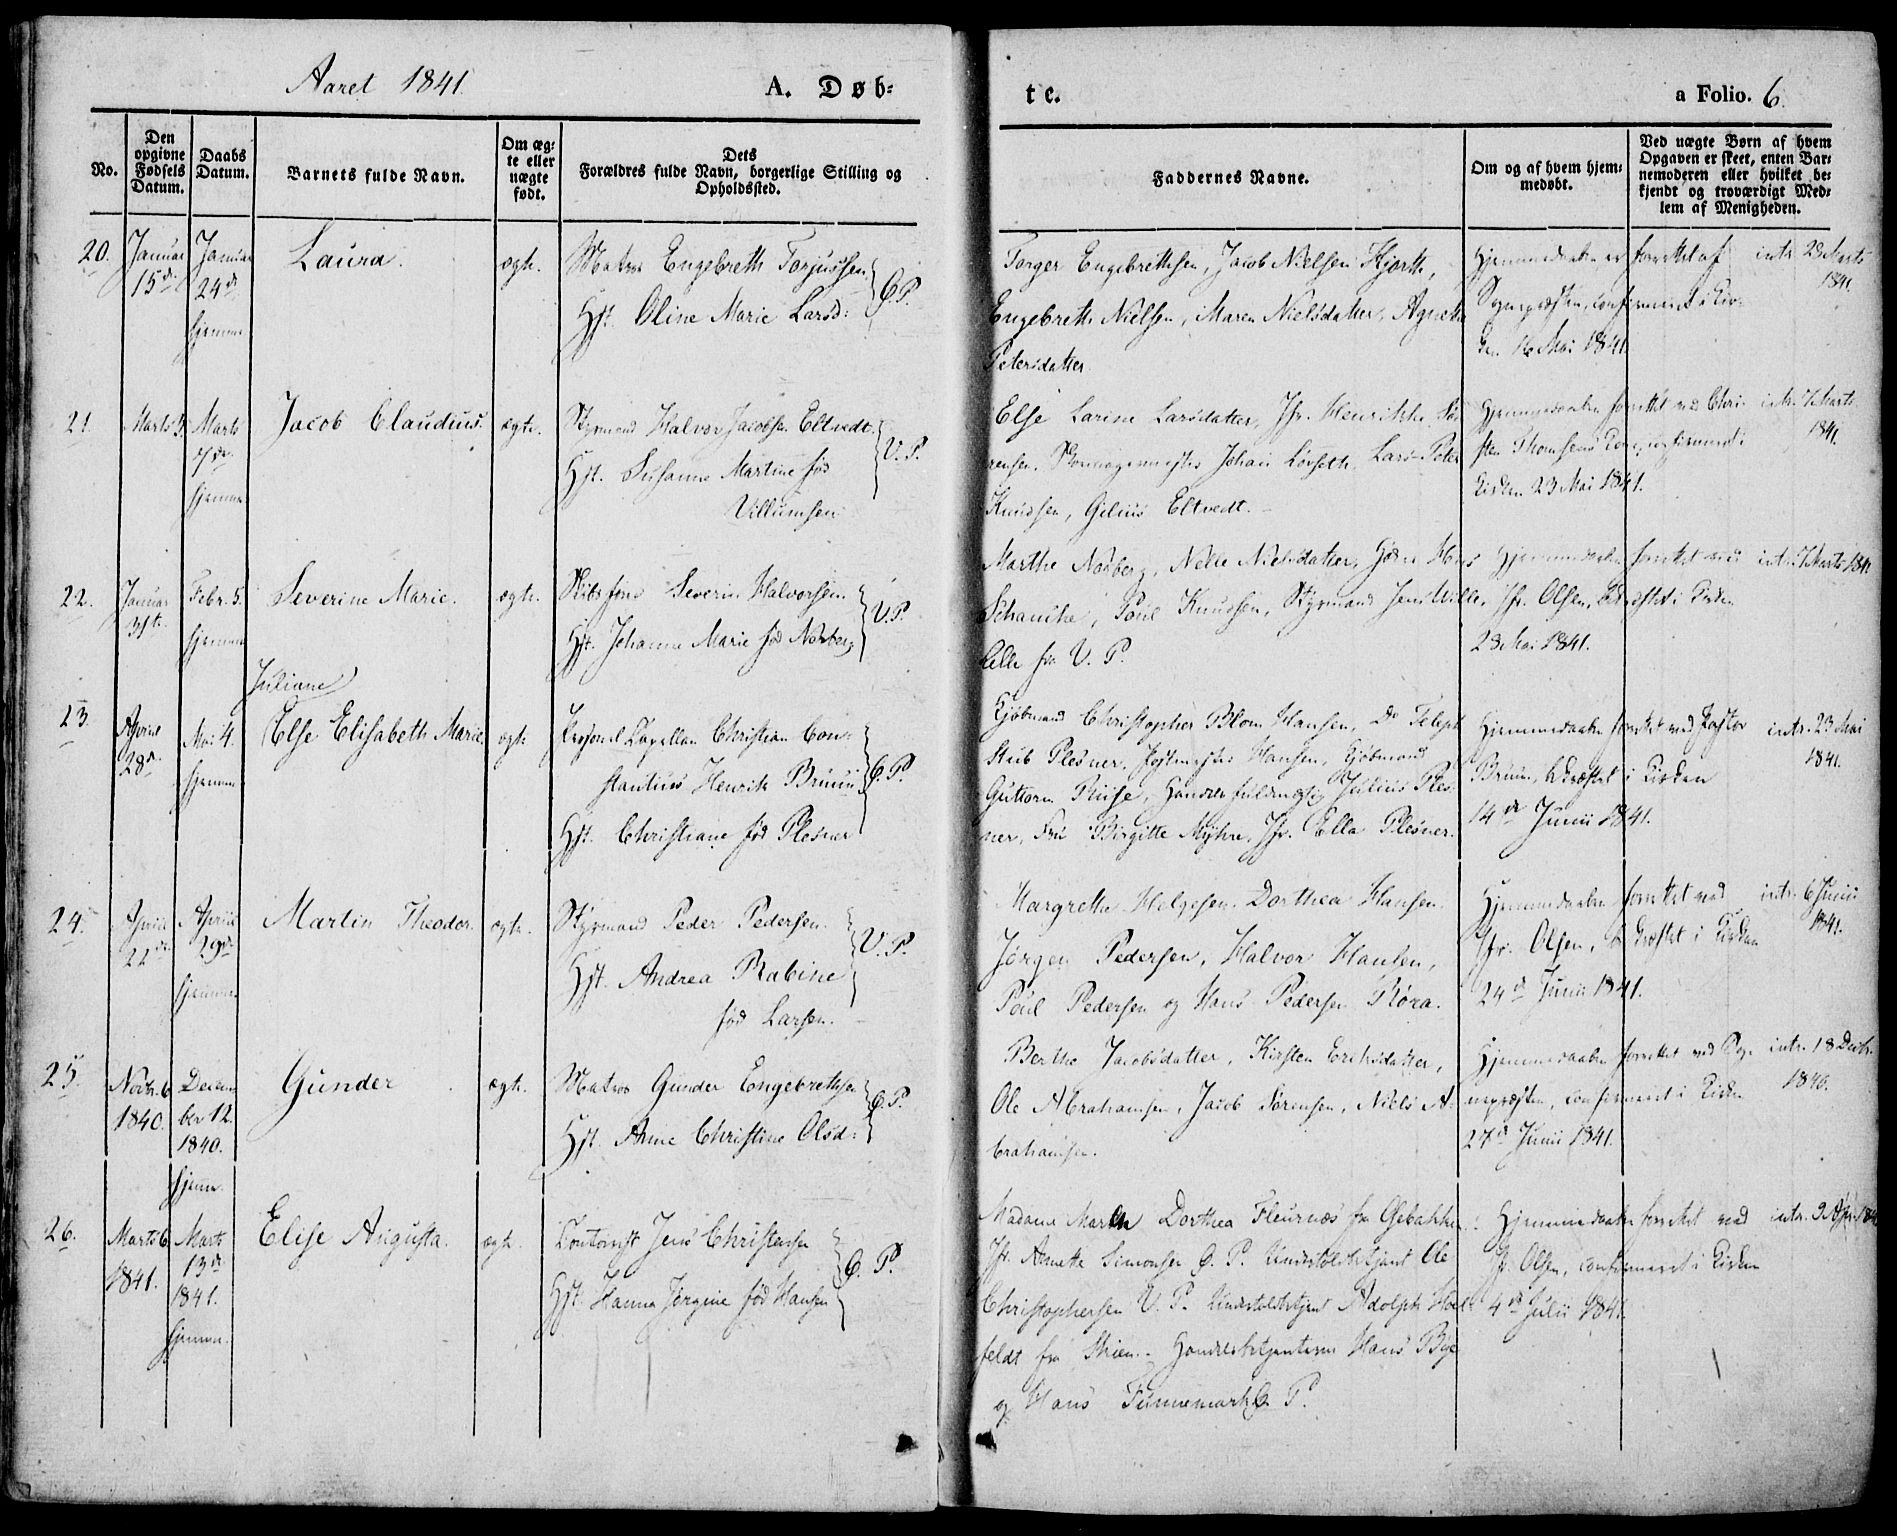 Aaret 1841.
A. Døb-
te.
a Folio. 6.
No.
Den opgivne Fødsels Datum.
Daabs Datum.
Barnets fulde Navn.
Om ægte eller uægte født.
Dets
Forældres fulde Navn, borgerlige Stilling og
Opholdssted.
Faddernes Navne.
Om og af hvem hjem-
medøbt.
Ved uægte Børn af hvem
Opgaven er skeet, enten Bar-
nemoderen eller hvilket be-
kjendt og troværdigt Med-
lem af Menigheden.
20.
Januar
15de
Januar
24de
hjemme
Laura.
ægte.
Matros Engebreth Torjussen
Hst. Oline Marie Larsd:
Ø.P.
Torger Engebrethsen, Jacob Nielsen Hjorth,
Engebreth Nielsen, Maren Nielsdatter, Agnethe
Petersdatter
Hjemmedaaben er forrettet af
Sognepræsten, confirmeret i Kir-
ken 16 Mai 1841.
intr. 23 Marts
1841.
21.
Marts 3.
Marts
7de
hjemme
Jacob Claudius.
ægte.
Styrmand Halvor Jacobsen Eltvedt.
Hst. Susanne Martine fød
Villumsen
V.P.
Else Larine Larsdatter, Jfr. Henrikke Sø-
rensen. Johan Løvseth. Lars Peter
Knudsen, Gilius Eltvedt.
Hjemmedaaben forrettet ved Chri-
sten Thomsens confirmeret i
Kirken 23 Mai 1841.
intr. 7 Marts
1841.
22.
Januar
31te
Febr. 5.
hjemme
Severine Marie.
ægte.
Skibsføre Severin Halvorsen
Hst. Johanne Marie fød Norberg
V.P.
Marthe Norberg, Nelle Nielsdatter,
Schanche, Poul Knudsen, Styrmand Jens Wille,
alle fra V. P.
Hjemmedaaben forrettet ved
Jfr. Olsen, bekræftet i Kirken
23 Mai 1841.
intr. 7 Marts 1841
23.
Aprill
28de
Mai 4.
hjemme
Juliane
Else Elisabeth Marie.
ægte
Personel Capellan Christian Con-
stantius Henrik Bruun
Hst. Christiane fød Plesner
Ø.P.
Kjøbmand Christopher Blom Hansen, Do Teleph
Stub Plesner, Postmester Hansen, Kjøbmand
Guttorm Riise, Handelsfuldmægtig Julius Ples-
ner, Fru Birgitte Myhre, Jfr. Ella Plesner.
Hjemmedaaben forrettet ved Pastor
Bruun, bekræftet i Kirken
14de Junii 1841.
intr. 23 Mai
1841.
24.
April
22de
April
29de
hjemme
Martin Theodor.
ægte.
Styrmand Peder Pedersen.
Hst. Andrea Rabine
fød Larsen.
V.P.
Margrethe Helgesen. Dorthea Hansen.
Jørgen Pedersen, Halvor Hansen,
Poul Pedersen og Hans Pedersen Røra.
Hjemmedaaben forrettet ved
Jfr. Olsen, bekræftet i Kirken
24de Junii 1841.
intr. 6 Junii
1841.
25.
Novbr. 6
1840.
Decem
ber 12.
1840.
hjemme.
Gunder
ægte.
Matros Gunder Engebrethsen
Hst. Anne Christine Olsd:
Ø.P.
Berthe Jacobsdatter, Kirsten Eriksdatter,
Ole Abrahamsen, Jacob Sørensen, Niels A-
brahamsen.
Hjemmedaaben forrettet ved Sog-
nepræsten, confirmeret i Kirken
27de Junii 1841.
intr. 18 Decbr.
1840.
26.
Marts 6
1841.
Marts
13de
1841.
hjemme.
Elise Augusta.
ægte.
Contorist Jens Christensen
Hst. Hanna Jørgine fød Hansen
Ø. P.
Madame Maren Dorthea Fleurnæs fra Osebakken
Jfr. Annette Simonsen Ø. P. Undertoldbetjent Ole
Christophersen V. P. Undertoldbetjent Adolph Hoel-
feldt fra Skien. Handelsbetjenterne Hans Bye
og Hans Tinnemark Ø. P.
Hjemmedaaben forrettet ved
Jfr. Olsen, confirmeret i Kirken
4de Julii 1841.
intr. 9 April 1841